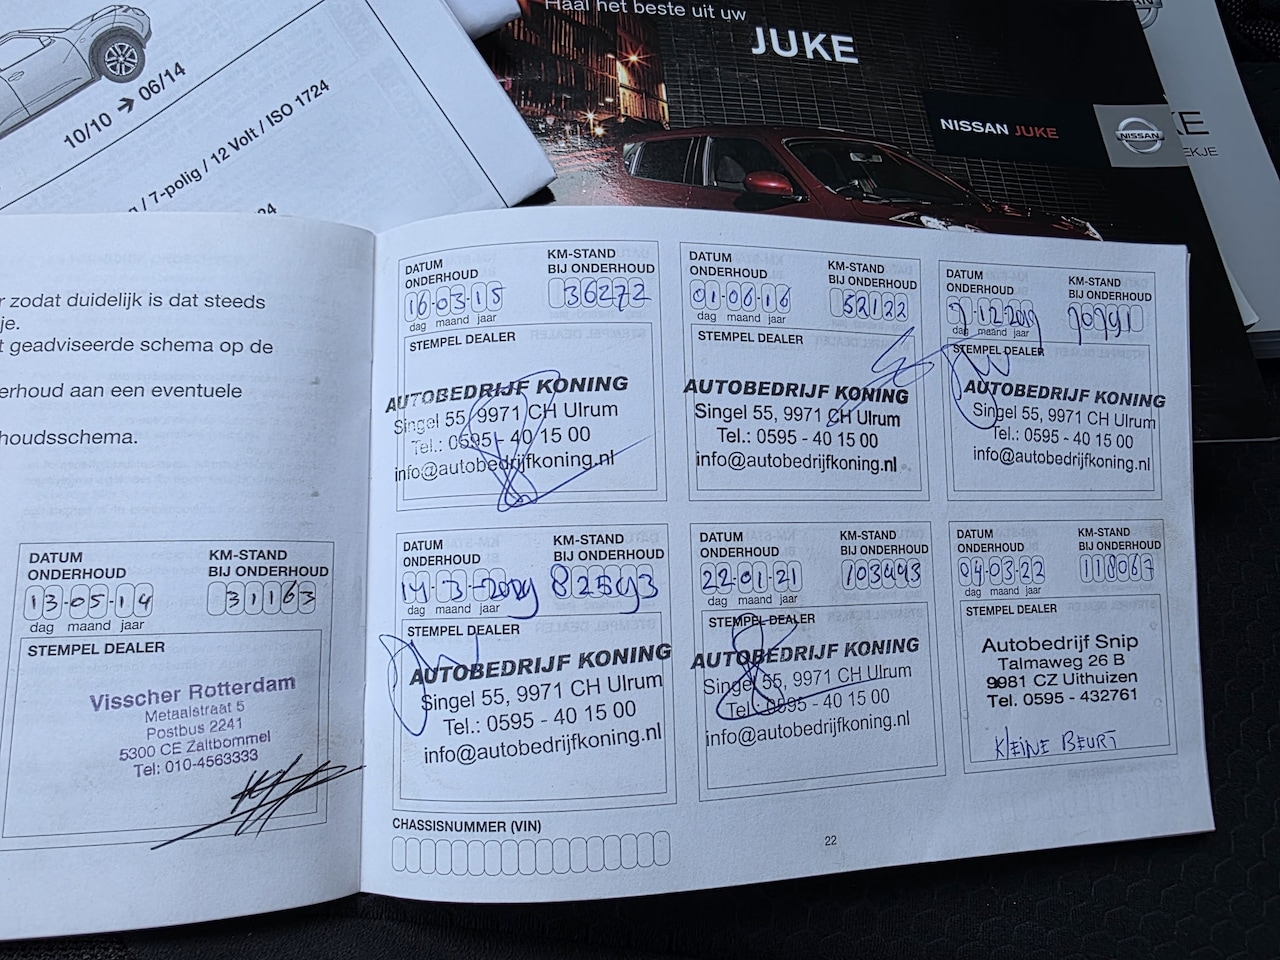 10/10 → 06/14
/ 7-polig / 12 Volt / ISO 1724
Haal het beste uit uw
JUKE
NISSAN JUKE
NISSAN
KE
EKJE
r zodat duidelijk is dat steeds
je.
t geadviseerde schema op de
erhoud aan een eventuele
houdsschema.
DATUM
ONDERHOUD
KM-STAND
BIJ ONDERHOUD
13-05-14
31163
dag maand jaar
STEMPEL DEALER
Visscher Rotterdam
Metaalstraat 5
Postbus 2241
5300 CE Zaltbommel
Tel: 010-4563333
DATUM
ONDERHOUD
KM-STAND
BIJ ONDERHOUD
16-03-15
36272
dag maand jaar
STEMPEL DEALER
AUTOBEDRIJF KONING
Singel 55, 9971 CH Ulrum
Tel.: 0595 - 40 15 00
info@autobedrijfkoning.nl
DATUM
ONDERHOUD
KM-STAND
BIJ ONDERHOUD
01-06-16
52122
dag maand jaar
STEMPEL DEALER
AUTOBEDRIJF KONING
Singel 55, 9971 CH Ulrum
Tel.: 0595 - 40 15 00
info@autobedrijfkoning.nl
DATUM
ONDERHOUD
KM-STAND
BIJ ONDERHOUD
70791
dag maand jaar
STEMPEL DEALER
AUTOBEDRIJF KONING
Singel 55, 9971 CH Ulrum
Tel.: 0595 - 40 15 00
info@autobedrijfkoning.nl
DATUM
ONDERHOUD
KM-STAND
BIJ ONDERHOUD
dag maand jaar
STEMPEL DEALER
AUTOBEDRIJF KONING
Singel 55, 9971 CH Ulrum
Tel.: 0595 - 40 15 00
info@autobedrijfkoning.nl
DATUM
ONDERHOUD
KM-STAND
BIJ ONDERHOUD
22-01-21
103493
dag maand jaar
STEMPEL DEALER
AUTOBEDRIJF KONING
Singel 55, 9971 CH Ulrum
Tel.: 0595 - 40 15 00
info@autobedrijfkoning.nl
DATUM
ONDERHOUD
KM-STAND
BIJ ONDERHOUD
04-03-22
118067
dag maand jaar
STEMPEL DEALER
Autobedrijf Snip
Talmaweg 26 B
9981 CZ Uithuizen
Tel. 0595 - 432761
KLEINE BEURT
CHASSISNUMMER (VIN)
22